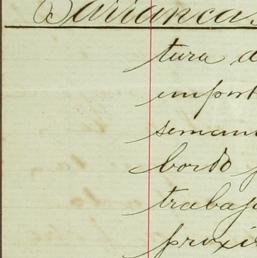 Barrancas
tura d
import
seman
bordo p
trabaj
proxi